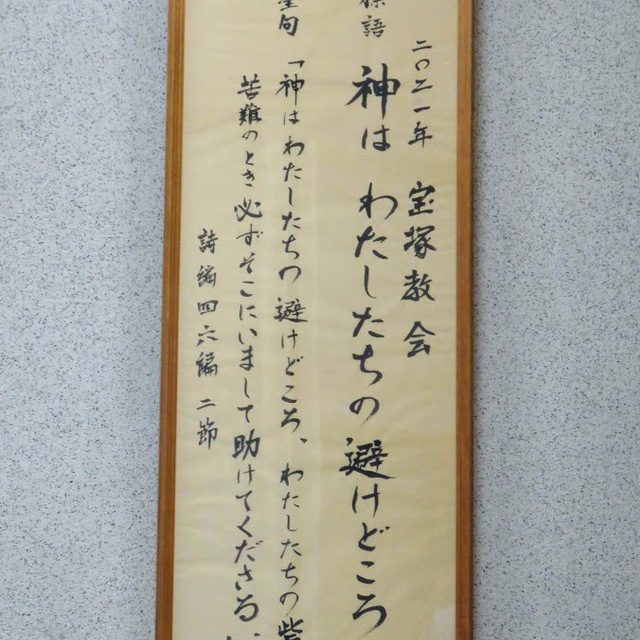 二〇二一年 宝塚教会
標語 神は わたしたちの避けどころ
聖句 「神はわたしたちの避けどころ、わたしたちの
苦難のとき必ずそこにいまして助けてくださる
詩編四六編 二節